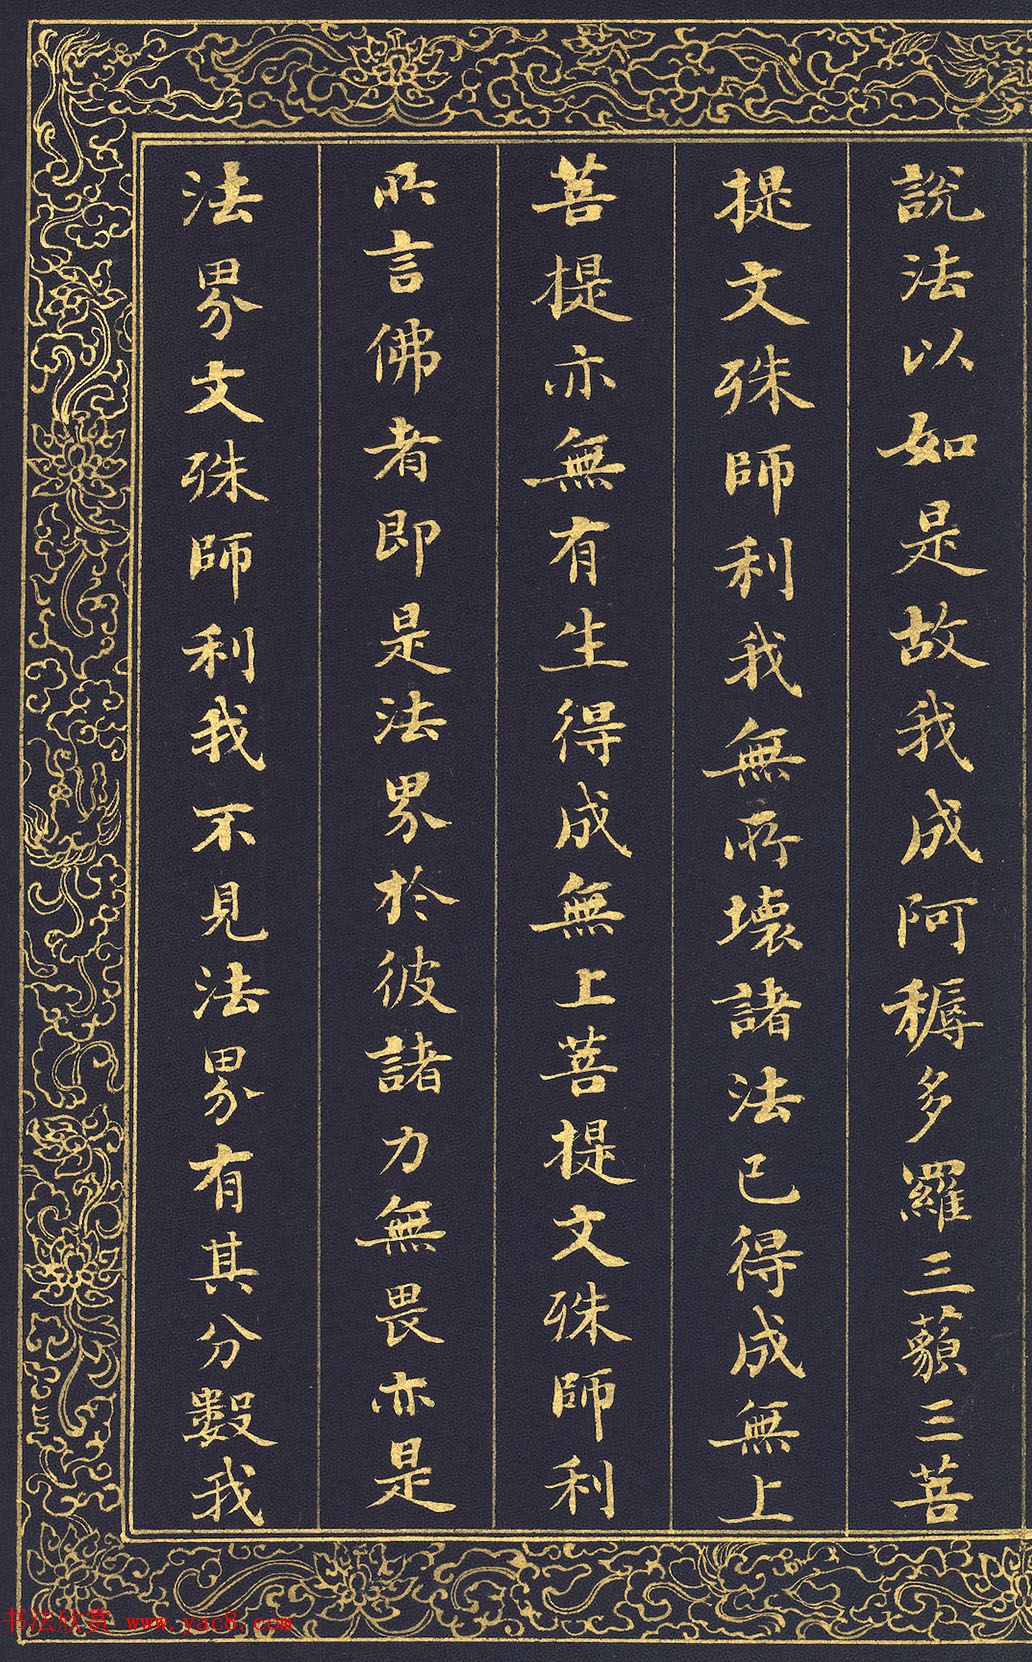 說法以如是故我成阿耨多羅三藐三菩
提文殊師利我無所壞諸法已得成無上
菩提亦無有生得成無上菩提文殊師利
所言佛者即是法界於彼諸力無畏亦是
法界文殊師利我不見法界有其分數我
书法欣赏 www.yac8.com